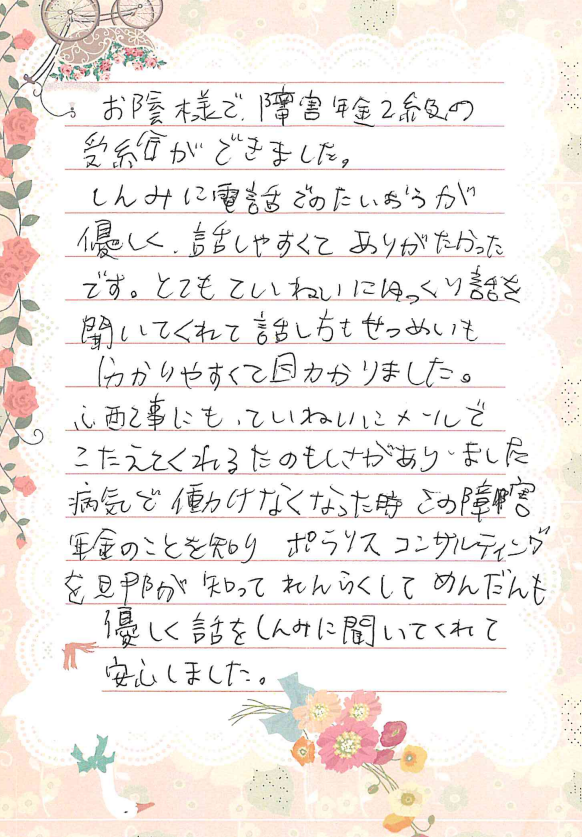 お陰様で、障害年金2級の
受給ができました。
しんみに電話でのたいおうが
優しく、話しやすくて ありがたかった
です。とてもていねいにゆっくり話を
聞いてくれて 話し方もせつめいも
分かりやすくて助かりました。
心配事にも、ていねいにメールで
こたえてくれるたのもしさがありました
病気で 働けなくなった時 この障害
年金のことを知り ポラリスコンサルティング
を旦那が 知って れんらくして めんだんも
優しく話をしんみに聞いてくれて
安心しました。